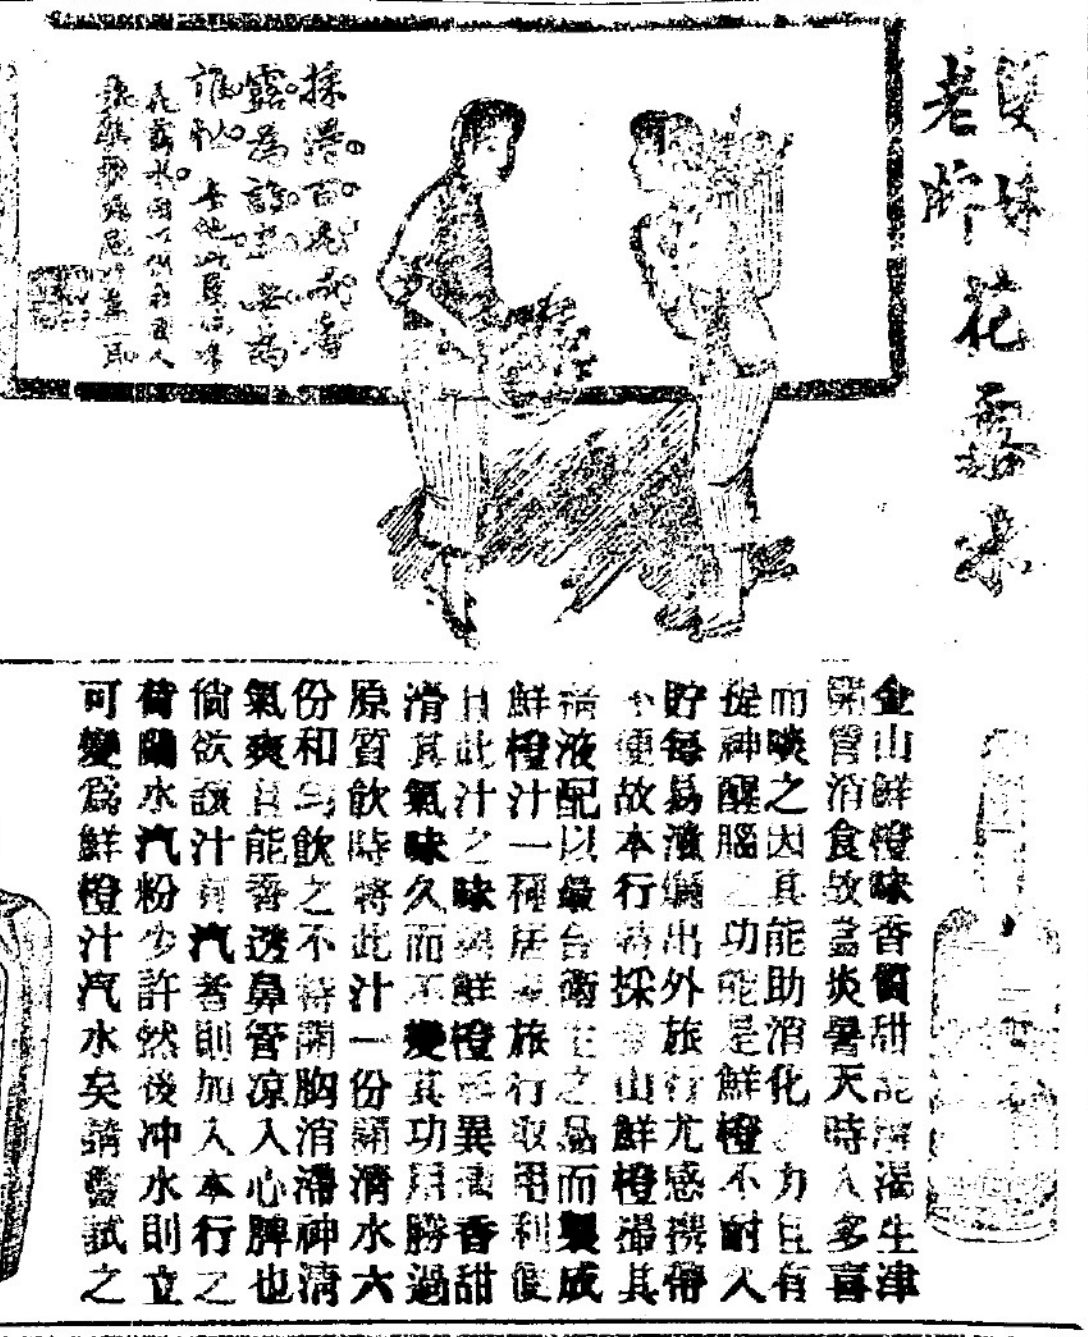 雙妹
老牌
花露水
採得百花成香
露為誰辛苦為
誰忙
金山鮮橙味香質甜能解渴生津
開胃消食故當炎暑天時人多喜
而啖之因其能助消化之力且有
提神醒腦之功能是鮮橙不耐久
貯每易潰爛出外旅行尤感携帶
不便故本行特採金山鮮橙撮其
精液配以最合衛生之品而製成
鮮橙汁一種居家旅行取用利便
且此汁之味與鮮橙無異而香甜
滑其氣味久而不變其功用勝過
原質飲時將此汁一份開清水六
份和勻飲之不特開胸消滯神清
氣爽且能香透鼻管凉入心脾也
倘欲讓汁有汽者則加入本行之
荷蘭水汽粉少許然後冲水則立
可變為鮮橙汁汽水矣請嘗試之